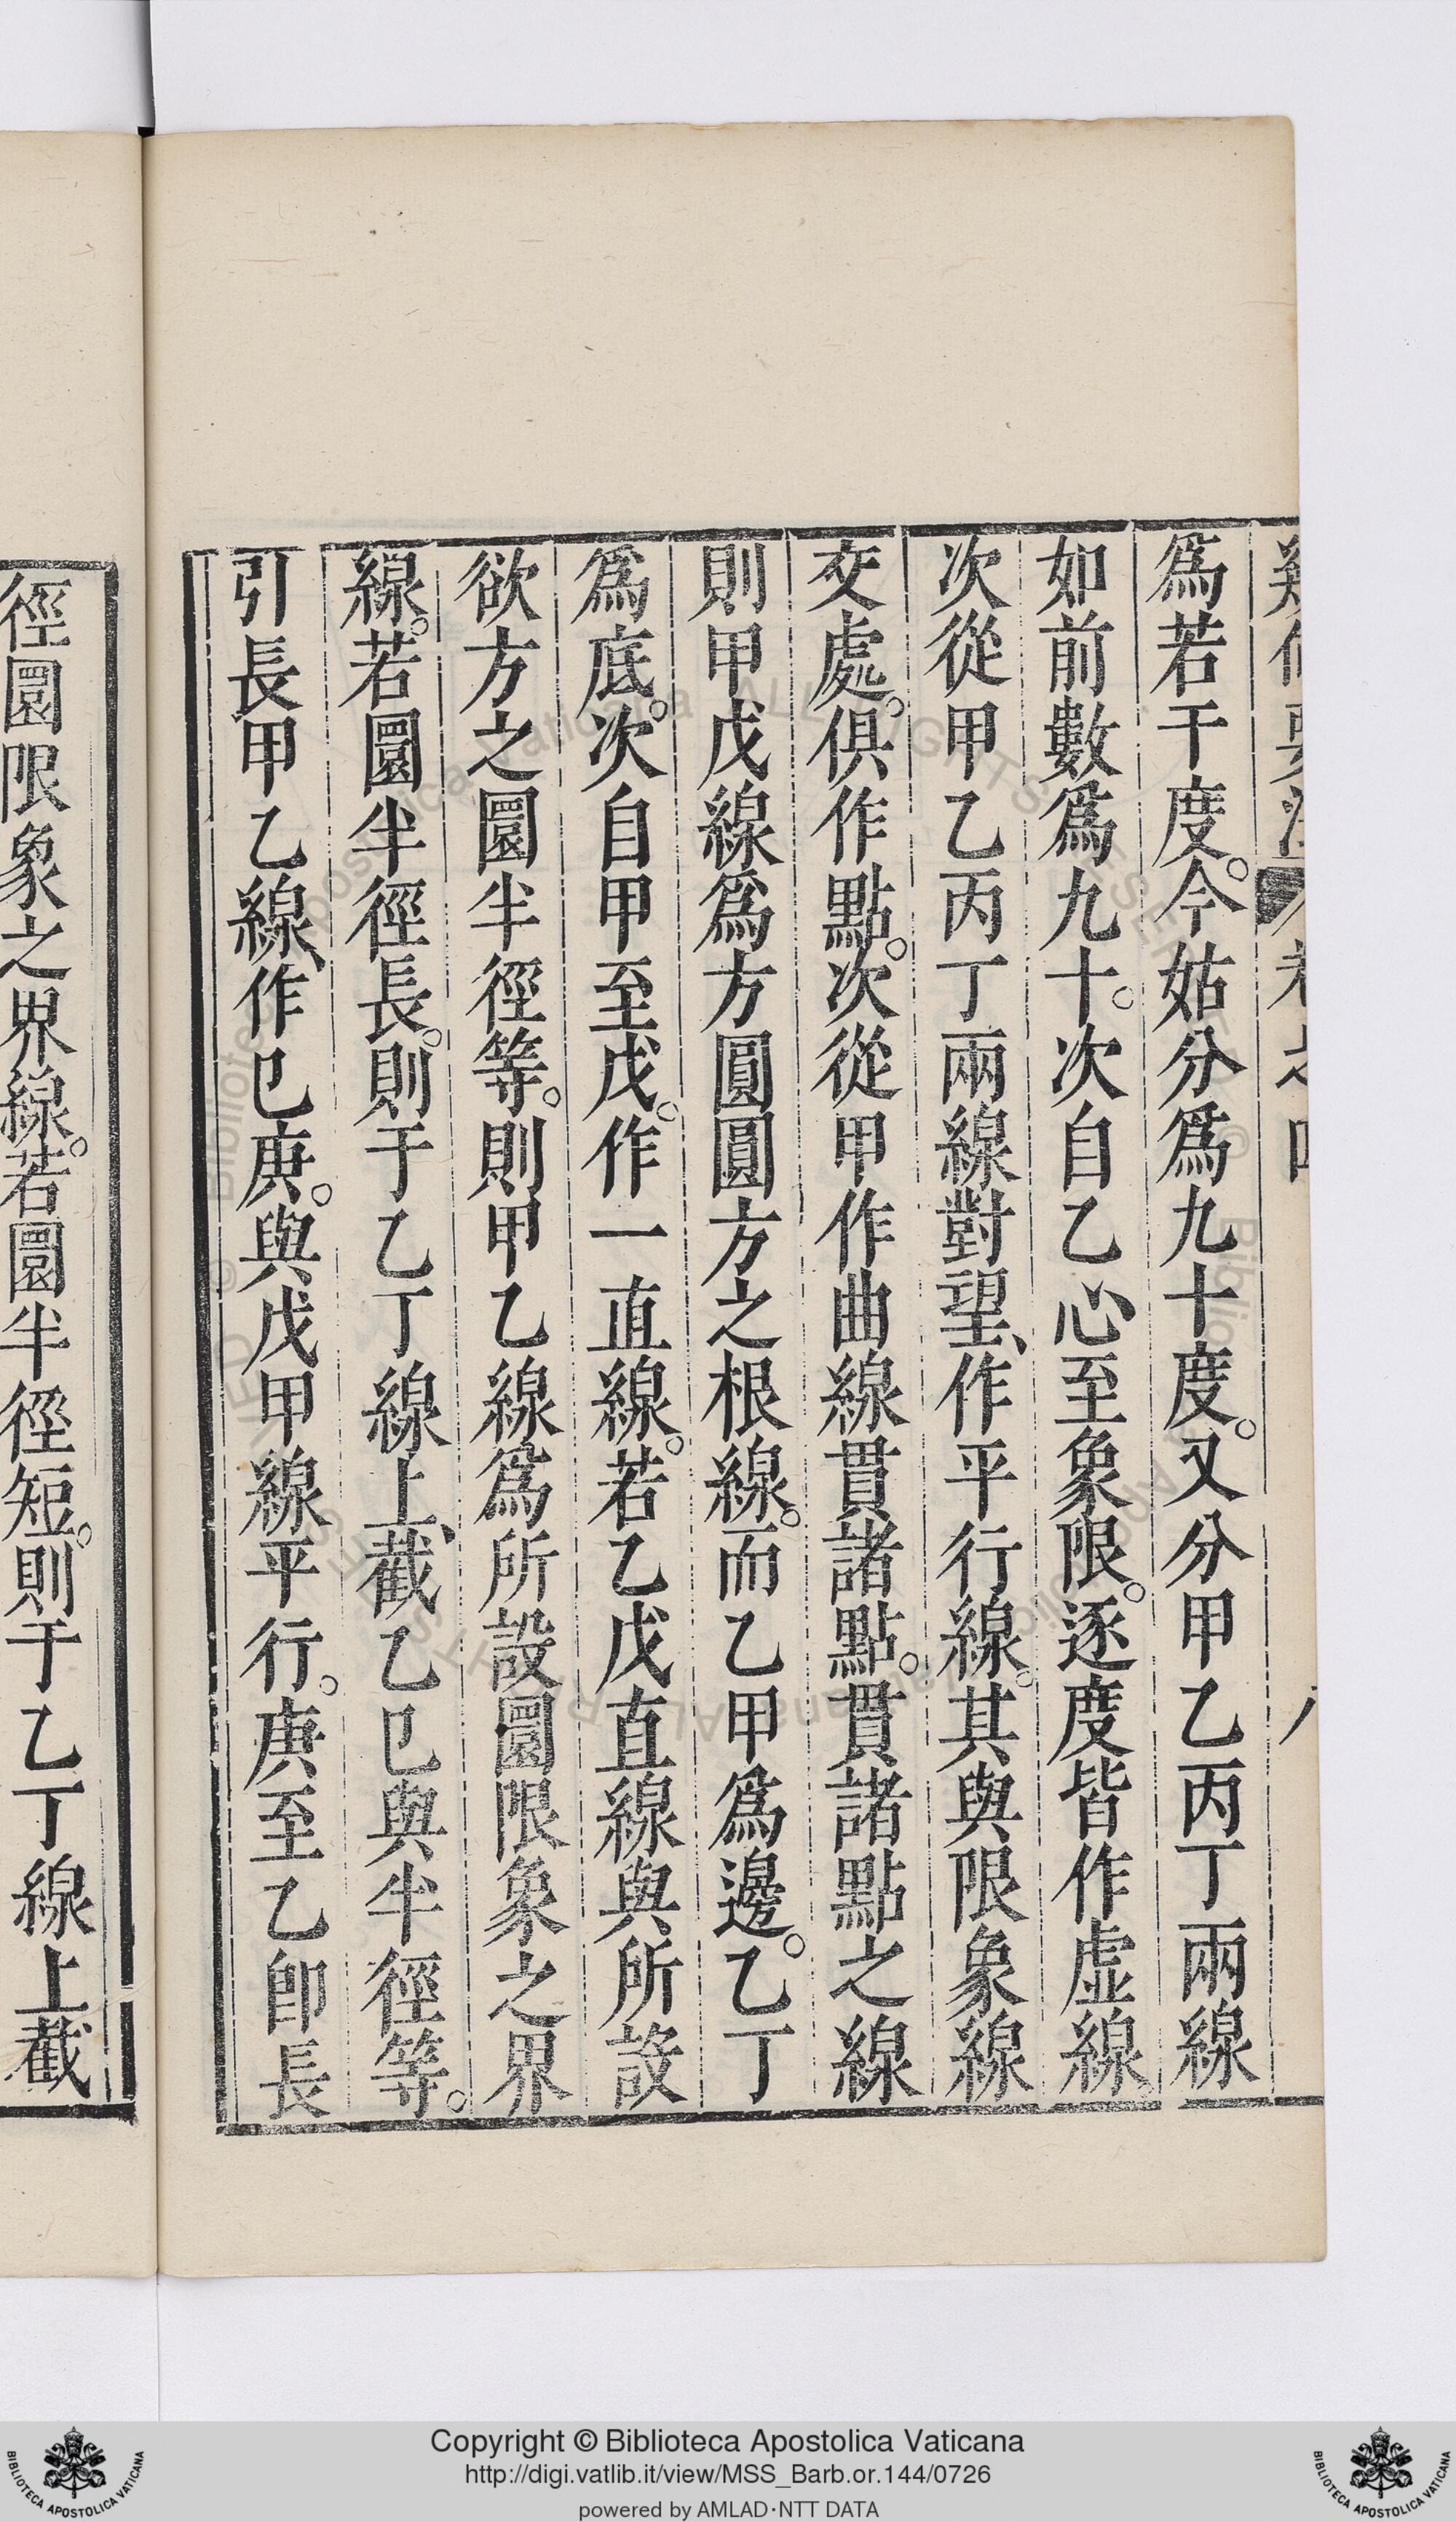 爲若干度。今姑分爲九十度。又分甲乙丙丁兩線
如前數爲九十。次自乙心、至象限。逐度皆作虚線。
次從甲乙丙丁兩線對望、作平行線。其與限象線
交處。俱作點。次從甲作曲線貫諸點。貫諸點之線
則甲戊線爲方圓圓方之根線。而乙甲爲邊。乙丁
爲底。次自甲至戊。作一直線。若乙戊直線與所設
欲方之圜半徑等。則甲乙線爲所設圜限象之界
線。若圜半徑長。則于乙丁線上、截乙巳與半徑等。
引長甲乙線、作巳庚。與戊甲線平行。庚至乙卽長
徑圜限象之界線。若圜半徑短。則于乙丁線上截
Copyright © Biblioteca Apostolica Vaticana
http://digi.vatlib.it/view/MSS_Barb.or.144/0726
powered by AMLAD·NTT DATA
BIBLIOTECA APOSTOLICA VATICANA
BIBLIOTECA APOSTOLICA VATICANA